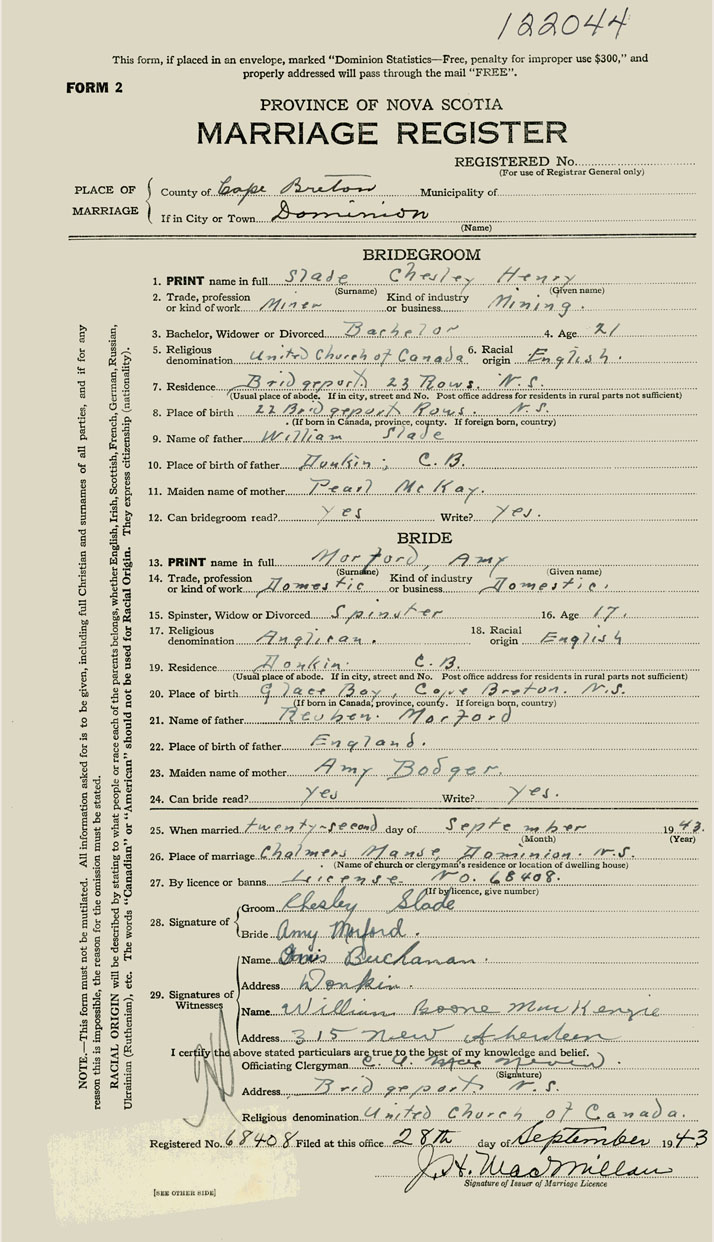 122044
This form, if placed in an envelope, marked "Dominion Statistics—Free, penalty for improper use $300," and
properly addressed will pass through the mail "FREE".
FORM 2
PROVINCE OF NOVA SCOTIA
MARRIAGE REGISTER
REGISTERED No.
(For use of Registrar General only)
PLACE OF MARRIAGE
County of Cape Breton Municipality of
If in City or Town Dominion
(Name)
BRIDEGROOM
1. PRINT name in full Slade Chesley Henry
(Surname) (Given name)
2. Trade, profession or kind of work Miner Kind of industry or business Mining.
3. Bachelor, Widower or Divorced Bachelor 4. Age 21
5. Religious denomination United Church of Canada 6. Racial origin English.
7. Residence Bridgeport 23 Rows. N.S.
(Usual place of abode. If in city, street and No. Post office address for residents in rural parts not sufficient)
8. Place of birth 22 Bridgeport Rows. N.S.
(If born in Canada, province, county. If foreign born, country)
9. Name of father William Slade
10. Place of birth of father Donkin, C.B.
11. Maiden name of mother Pearl McKay.
12. Can bridegroom read? yes Write? yes.
BRIDE
13. PRINT name in full Morford, Amy
(Surname) (Given name)
14. Trade, profession or kind of work Domestic Kind of industry or business Domestic.
15. Spinster, Widow or Divorced Spinster 16. Age 17.
17. Religious denomination Anglican. 18. Racial origin English
19. Residence Donkin. C.B.
(Usual place of abode. If in city, street and No. Post office address for residents in rural parts not sufficient)
20. Place of birth Glace Bay, Cape Breton. N.S.
(If born in Canada, province, county. If foreign born, country)
21. Name of father Reuben Morford
22. Place of birth of father England.
23. Maiden name of mother Amy Bodger.
24. Can bride read? yes Write? yes.
25. When married twenty-second day of September 1943.
(Month) (Year)
26. Place of marriage Chalmers Manse, Dominion. N.S.
(Name of church or clergyman's residence or location of dwelling house)
27. By licence or banns License No. 68408.
(If by licence, give number)
28. Signature of
Groom Chesley Slade
Bride Amy Morford.
29. Signatures of Witnesses
Name Buchanan.
Address Donkin.
Name William Boone MacKenzie
Address 315 New Aberdeen
I certify the above stated particulars are true to the best of my knowledge and belief.
Officiating Clergyman C. A.
(Signature)
Address Bridgeport N.S.
Religious denomination United Church of Canada.
Registered No. 68408 Filed at this office 28th day of September 1943
J. H. MacMillan
Signature of Issuer of Marriage Licence
[SEE OTHER SIDE]
NOTE.—This form must not be mutilated. All information asked for is to be given, including full Christian and surnames of all parties, and if for any
reason this is impossible, the reason for the omission must be stated.
RACIAL ORIGIN will be described by stating to what people or race each of the parents belongs, whether English, Irish, Scottish, French, German, Russian,
Ukrainian (Ruthenian), etc. The words "Canadian" or "American" should not be used for Racial Origin. They express citizenship (nationality).